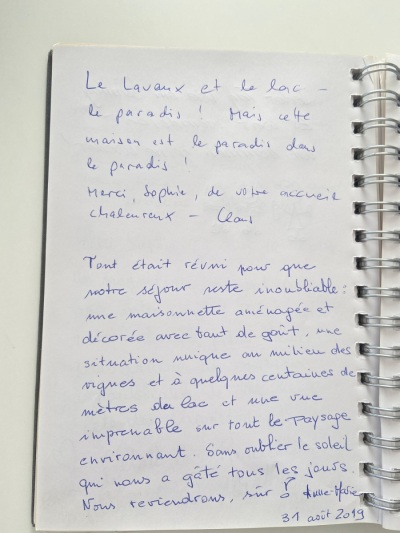 Le Lavaux et le lac –
le paradis ! Mais cette
maison est le paradis dans
le paradis !
Merci, Sophie, de votre accueil
chaleureux – Claus
Tout était réuni pour que
notre séjour reste inoubliable :
une maisonnette aménagée et
décorée avec tant de goût, une
situation unique au milieu des
vignes et à quelques centaines de
mètres du lac et une vue
imprenable sur tout le paysage
environnant. Sans oublier le soleil
qui nous a gâté tous les jours.
Nous reviendrons, sûr ! Anne-Marie
31 août 2019